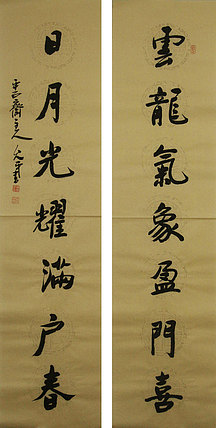 雲龍氣象盈門喜
日月光耀滿户春